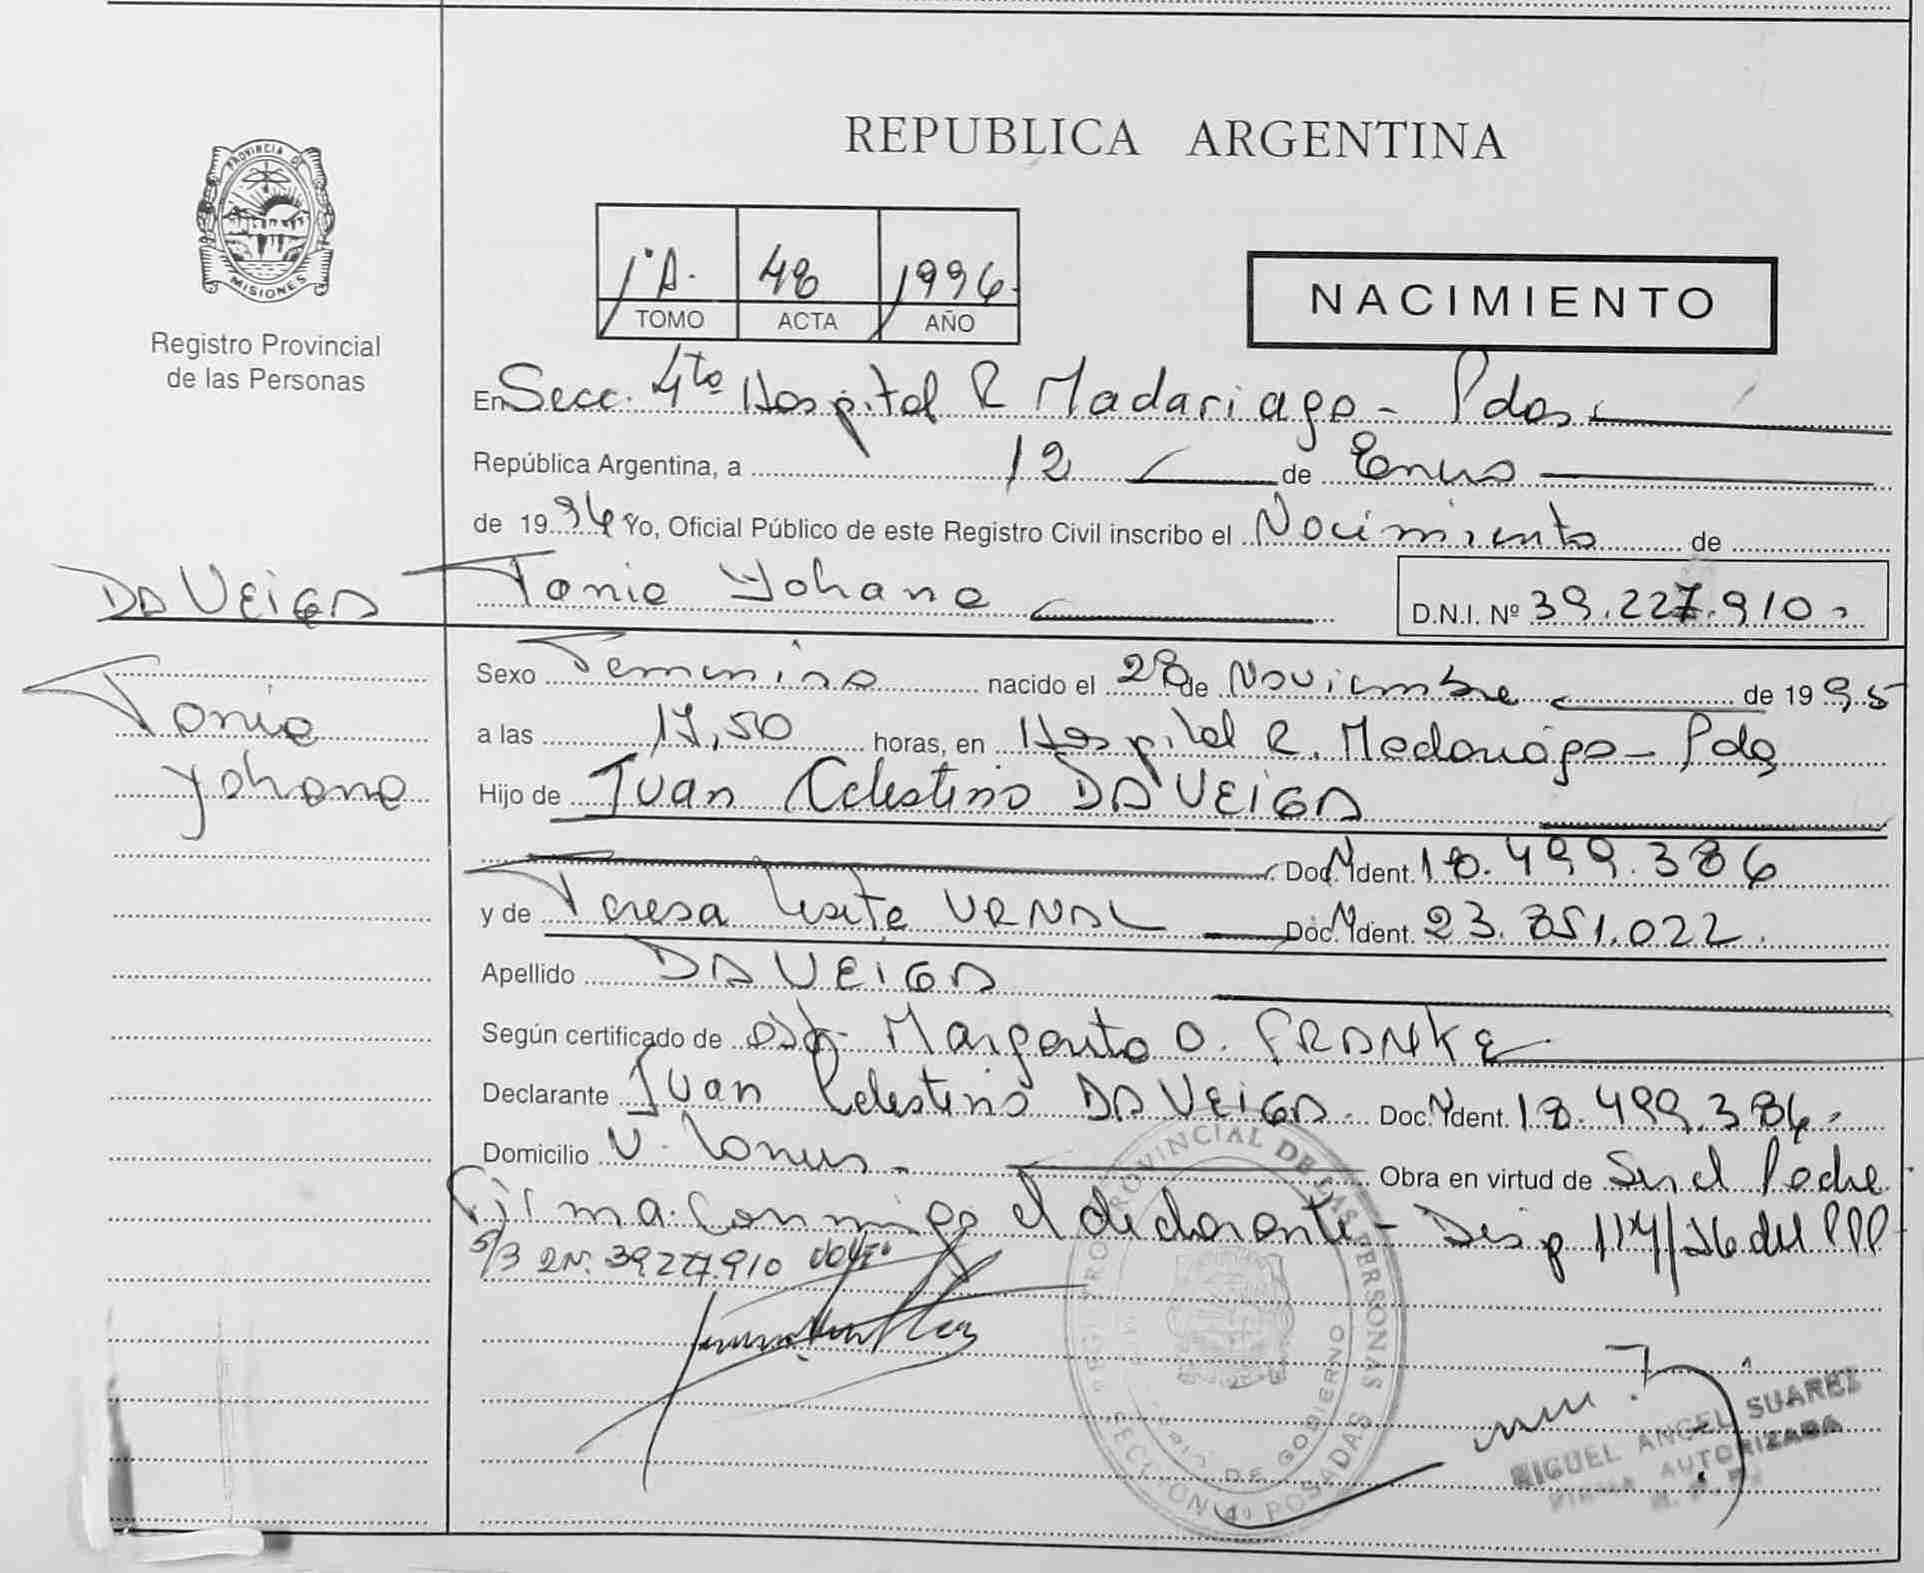 REPUBLICA ARGENTINA
PROVINCIA DE
MISIONES
Registro Provincial
de las Personas
1°A. 48 1996
TOMO ACTA AÑO
NACIMIENTO
En Secc. 4ta Hospital R Madariaga - Pdas
República Argentina, a 12 de Enero
de 1996 Yo, Oficial Público de este Registro Civil inscribo el Nacimiento de
DA VEIGA Tania Yohana D.N.I. Nº 39.227.910
Tania
Yohana
Sexo Femenino nacido el 28 de Noviembre de 1995
a las 17,50 horas, en Hospital R. Madariaga - Pdas
Hijo de Juan Celestino DA VEIGA
Doc. Ident. 18.499.386
y de Teresa DOC. Ident. 23.851.022.
Apellido DA VEIGA
Según certificado de Obst. Margarita O. FRANKE
Declarante Juan Celestino DA VEIGA. Doc. Ident. 18.499.386
Domicilio V. Lanus - Obra en virtud de Ser el Padre
Firma Conmigo el declarante - Disp 114/96 del RPP
S/3 39.227.910
REGISTRO PROVINCIAL DE LAS PERSONAS
DE GOBIERNO
SECCION 4º POSADAS
MIGUEL ANGEL SUAREZ
FIRMA AUTORIZADA